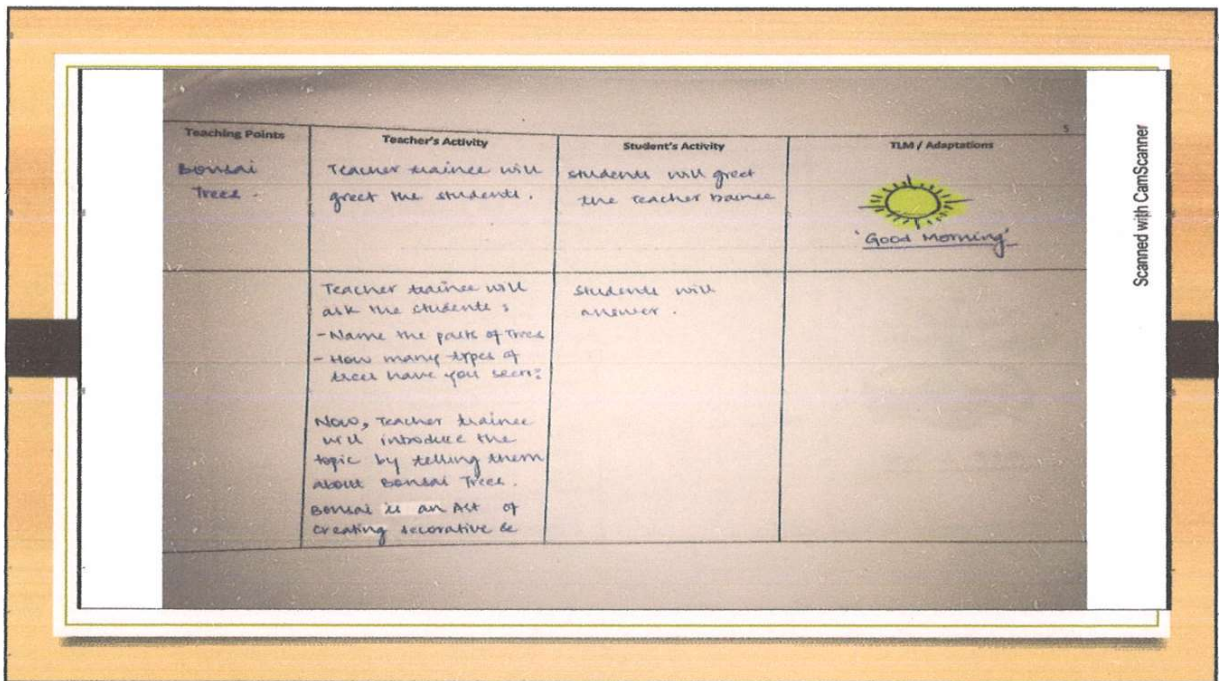 5
Teaching Points
Teacher's Activity
Student's Activity
TLM / Adaptations
Bonsai
Trees.
Teacher trainee will
greet the students.
students will greet
the teacher trainee
'Good Morning'
Teacher trainee will
ask the students :
- Name the parts of Trees
- How many types of
trees have you seen?
Now, Teacher trainee
will introduce the
topic by telling them
about Bonsai Trees.
Bonsai is an Art of
creating decorative &
students will
answer.
Scanned with CamScanner